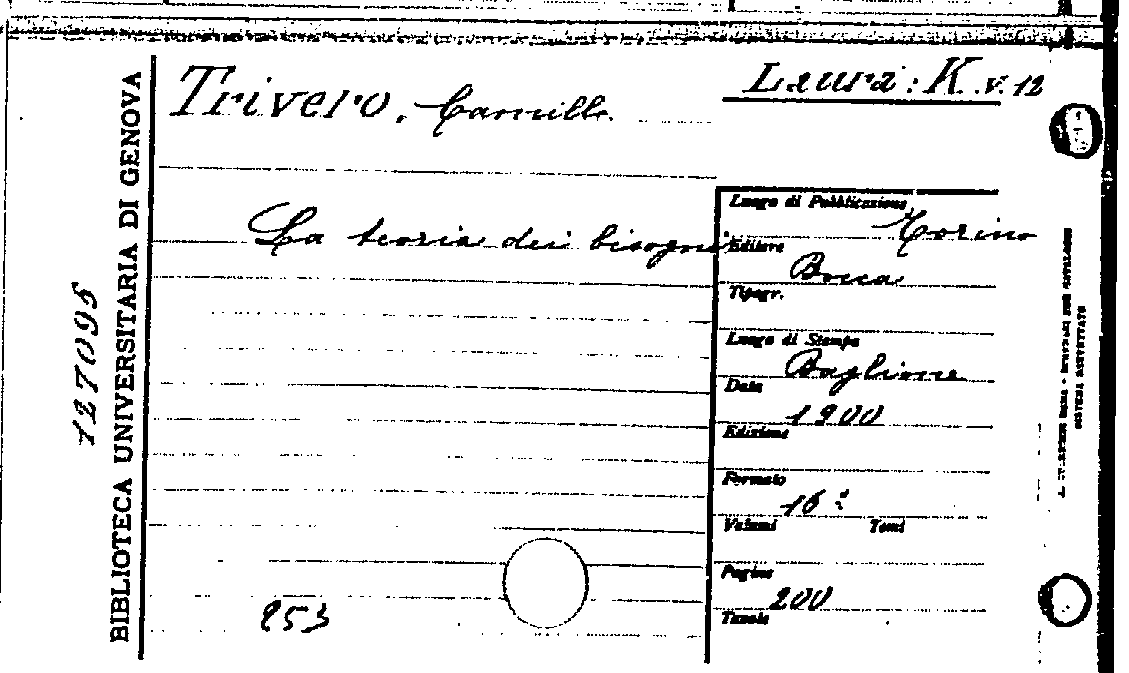 Trivero, Camillo
Laura: K. v. 12
BIBLIOTECA UNIVERSITARIA DI GENOVA
127095
La teoria dei bisogni
Luogo di Pubblicazione
Torino
Editore
Bocca
Tipogr.
Luogo di Stampa
Baglione
Data
1900
Edizione
Formato
16º
Volumi Tomi
Pagine
200
Tavole
253